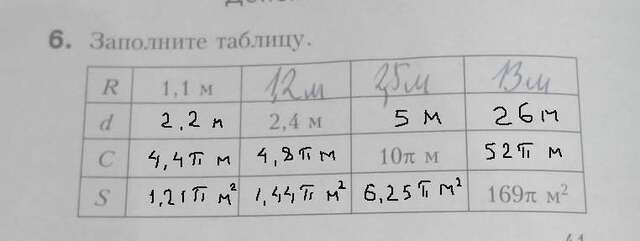 6. Заполните таблицу.
R 1,1 м 1,2 м 2,5 м 13 м
d 2,2 м 2,4 м 5 м 26 м
C 4,4π м 4,8π м 10π м 52π м
S 1,21π м² 1,44π м² 6,25π м² 169π м²